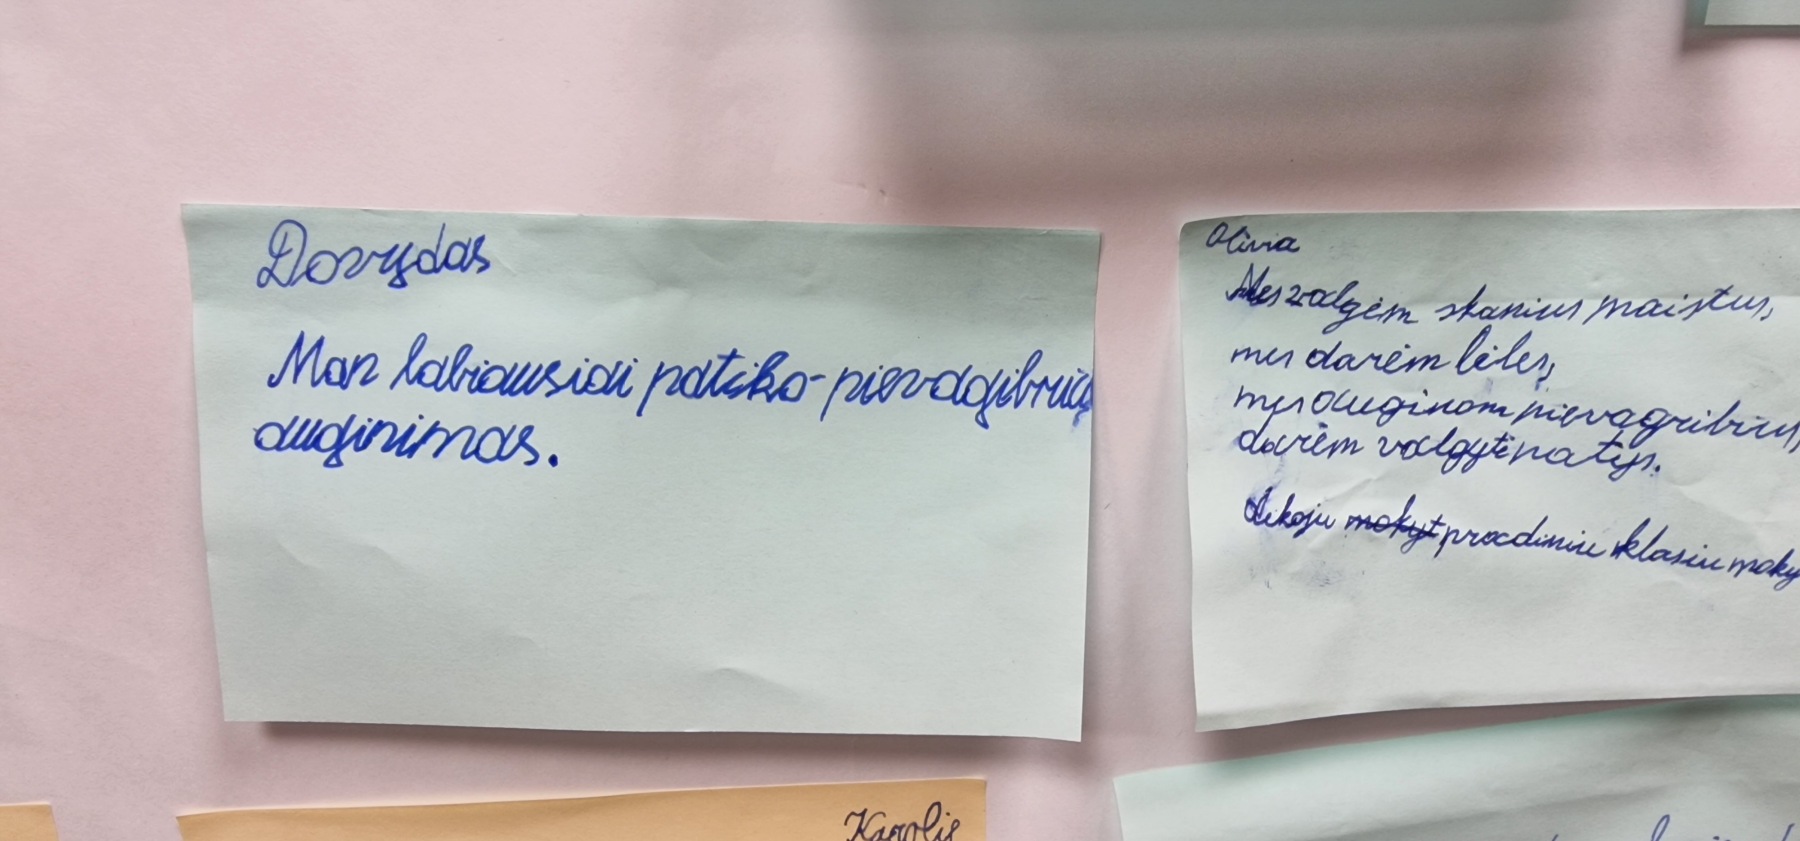 Dovydas
Man labiausiai patiko-pievagibrių
auginimas.
Olivia
Mes valgėm skanius maistus,
mes darėm lėles,
mes auginom pievagribius,
darėm valgyti patys.
dėkoju mokyt pradiniu klasiu moky
Karolis